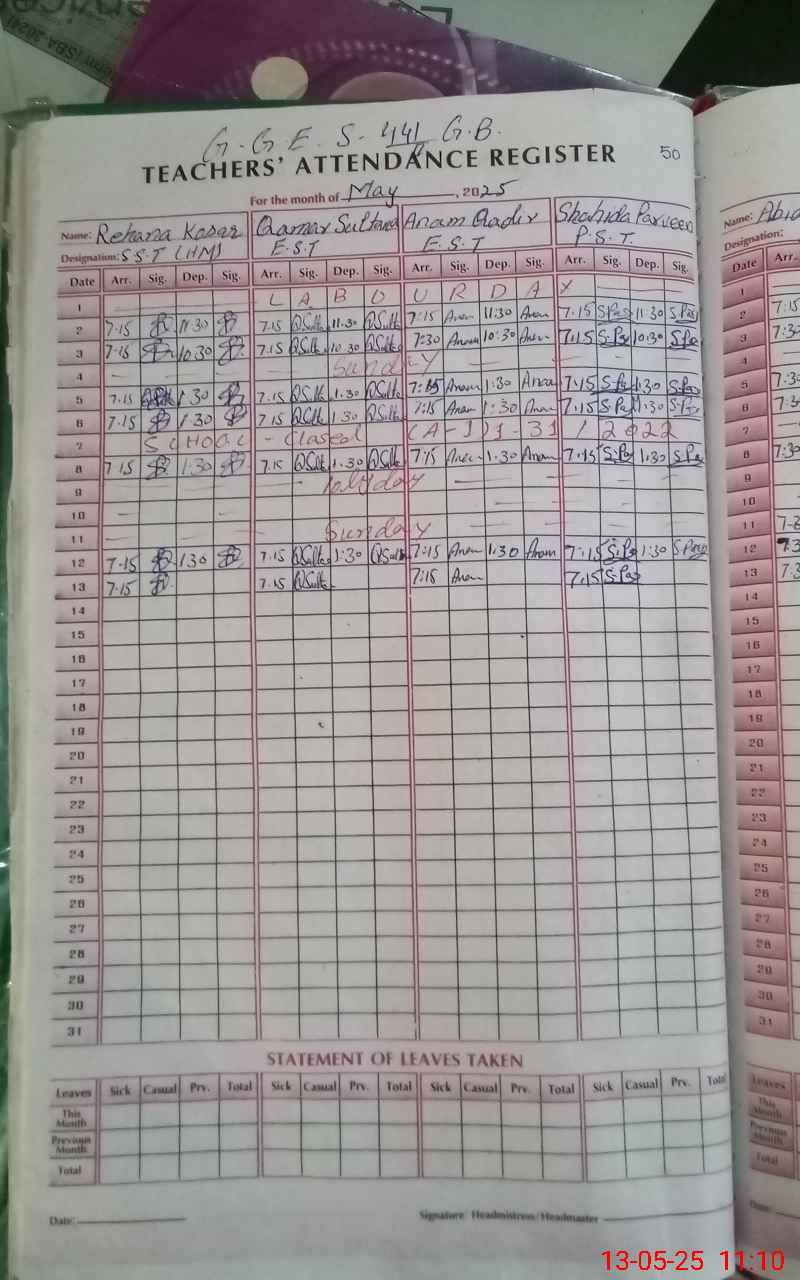 G.G.E.S. 441 G.B.
TEACHERS' ATTENDANCE REGISTER 50
For the month of May, 2025
Name: Rehana Kosar Qamar Sultana Anam Qadir Shahida Parveen
Designation: S.S.T (HM) E.S.T E.S.T P.S.T.
Date Arr. Sig. Dep. Sig. Arr. Sig. Dep. Sig. Arr. Sig. Dep. Sig. Arr. Sig. Dep. Sig.
1 L A B O U R D A Y
2 7.15 11:30 7.15 QSulta 11.30 QSulta 7:15 Anam 11:30 Anam 7.15 S.Par 11:30 S.Par
3 7:15 10.30 7.15 QSulta 10.30 QSulta 7:30 Anam 10:30 Anam 7.15 S.Par 10:30 S.Par
4 Sunday
5 7.15 1.30 7.15 QSulta 1.30 QSulta 7:15 Anam 1:30 Anam 7.15 S.Par 1:30 S.Par
6 7.15 1.30 7.15 QSulta 1.30 QSulta 7:15 Anam 1:30 Anam 7.15 S.Par 1:30 S.Par
7 SCHOOL - Closed (A-1) 1-31 / 2022
8 7.15 1:30 7.15 QSulta 1.30 QSulta 7:15 Anam 1.30 Anam 7:15 S.Par 1:30 S.Par
9 Holyday
10
11 Sunday
12 7.15 1.30 7.15 QSulta 1:30 QSulta 7:15 Anam 1.30 Anam 7:15 S.Par 1:30 S.Par
13 7.15 7.15 QSulta 7:15 Anam 7.15 S.Par
14
15
16
17
18
19
20
21
22
23
24
25
26
27
28
29
30
31
STATEMENT OF LEAVES TAKEN
Leaves Sick Casual Prv. Total Sick Casual Prv. Total Sick Casual Prv. Total Sick Casual Prv. Total
This Month
Previous Month
Total
Date: Signature: Headmistress/Headmaster
Name: Abid
Designation:
Date Arr.
1
2 7:15
3 7:3
4
5 7:3
6 7:3
7
8 7:30
9
10
11
12 7.3
13 7:3
14
15
16
17
18
19
20
21
22
23
24
25
26
27
28
29
30
31
Leaves
This Month
Previous Month
Total
Date:
13-05-25 11:10